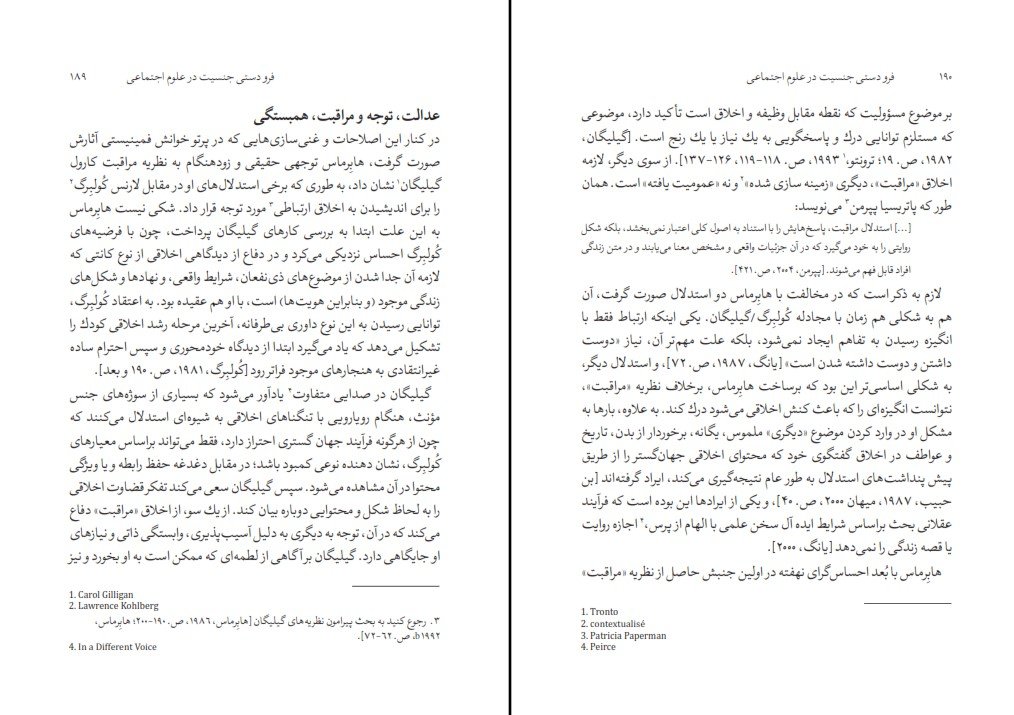 فرودستی جنسیت در علوم اجتماعی ۱۸۹
عدالت، توجه و مراقبت، همبستگی
در کنار این اصلاحات و غنی‌سازی‌هایی که در پرتو خوانش فمینیستی آثارش
صورت گرفت، هابِرماس توجهی حقیقی و زودهنگام به نظریه مراقبت کارول
گیلیگان۱ نشان داد، به طوری که برخی استدلال‌های او در مقابل لارنس کُولبِرگ۲
را برای اندیشیدن به اخلاق ارتباطی۳ مورد توجه قرار داد. شکی نیست هابِرماس
به این علت ابتدا به بررسی کارهای گیلیگان پرداخت، چون با فرضیه‌های
کُولبِرگ احساس نزدیکی می‌کرد و در دفاع از دیدگاهی اخلاقی از نوع کانتی که
لازمه آن جدا شدن از موضوع‌های ذی‌نفعان، شرایط واقعی، و نهادها و شکل‌های
زندگی موجود (و بنابراین هویت‌ها) است، با او هم عقیده بود. به اعتقاد کُولبِرگ،
توانایی رسیدن به این نوع داوری بی‌طرفانه، آخرین مرحله رشد اخلاقی کودك را
تشکیل می‌دهد که یاد می‌گیرد ابتدا از دیدگاه خودمحوری و سپس احترام ساده
غیرانتقادی به هنجارهای موجود فراتر رود [کُولبِرگ، ۱۹۸۱، ص. ۱۹۰ و بعد].
گیلیگان در صدایی متفاوت۴ یادآور می‌شود که بسیاری از سوژه‌های جنس
مؤنث، هنگام رویارویی با تنگناهای اخلاقی به شیوه‌ای استدلال می‌کنند که
چون از هرگونه فرآیند جهان گستری احتراز دارد، فقط می‌تواند براساس معیارهای
کُولبِرگ، نشان دهنده نوعی کمبود باشد؛ در مقابل دغدغه حفظ رابطه و یا ویژگی
محتوا در آن مشاهده می‌شود. سپس گیلیگان سعی می‌کند تفکر قضاوت اخلاقی
را به لحاظ شکل و محتوایی دوباره بیان کند. از یك سو، از اخلاق «مراقبت» دفاع
می‌کند که در آن، توجه به دیگری به دلیل آسیب‌پذیری، وابستگی ذاتی و نیازهای
او جایگاهی دارد. گیلیگان بر آگاهی از لطمه‌ای که ممکن است به او بخورد و نیز
1. Carol Gilligan
2. Lawrence Kohlberg
۳. رجوع کنید به بحث پیرامون نظریه‌های گیلیگان [هابِرماس، ۱۹۸۶، ص. ۱۹۰-۲۰۰؛ هابِرماس،
۱۹۹۲b، ص. ۶۲-۷۲].
4. In a Different Voice
۱۹۰ فرودستی جنسیت در علوم اجتماعی
بر موضوع مسؤولیت که نقطه مقابل وظیفه و اخلاق است تأکید دارد، موضوعی
که مستلزم توانایی درك و پاسخگویی به یك نیاز یا یك رنج است. [گیلیگان،
۱۹۸۲، ص. ۱۹؛ ترونتو،۱ ۱۹۹۳، ص. ۱۱۸-۱۱۹، ۱۲۶-۱۳۷]. از سوی دیگر، لازمه
اخلاق «مراقبت»، دیگری «زمینه سازی شده»۲ و نه «عمومیت یافته» است. همان
طور که پاتریسیا پپرمن۳ می‌نویسد:
[...] استدلال مراقبت، پاسخ‌هایش را با استناد به اصول کلی اعتبار نمی‌بخشد، بلکه شکل
روایتی را به خود می‌گیرد که در آن جزئیات واقعی و مشخص معنا می‌یابند و در متن زندگی
افراد قابل فهم می‌شوند. [پپرمن، ۲۰۰۴، ص. ۴۲۱].
لازم به ذکر است که در مخالفت با هابِرماس دو استدلال صورت گرفت، آن
هم به شکلی هم زمان با مجادله کُولبِرگ/گیلیگان. یکی اینکه ارتباط فقط با
انگیزه رسیدن به تفاهم ایجاد نمی‌شود، بلکه علت مهم‌تر آن، نیاز «دوست
داشتن و دوست داشته شدن است» [یانگ، ۱۹۸۷، ص. ۷۲]، و استدلال دیگر،
به شکلی اساسی‌تر این بود که برساخت هابِرماس، برخلاف نظریه «مراقبت»،
نتوانست انگیزه‌ای را که باعث کنش اخلاقی می‌شود درك کند. به علاوه، بارها به
مشکل او در وارد کردن موضوع «دیگری» ملموس، یگانه، برخوردار از بدن، تاریخ
و عواطف در اخلاق گفتگوی خود که محتوای اخلاقی جهان‌گستر را از طریق
پیش پنداشت‌های استدلال به طور عام نتیجه‌گیری می‌کند، ایراد گرفته‌اند [بن
حبیب، ۱۹۸۷، میهان ۲۰۰۰، ص. ۴۰]، و یکی از ایرادها این بوده است که فرآیند
عقلانی بحث براساس شرایط ایده آل سخن علمی با الهام از پرس،۴ اجازه روایت
یا قصه زندگی را نمی‌دهد [یانگ، ۲۰۰۰].
هابِرماس با بُعد احساس‌گرای نهفته در اولین جنبش حاصل از نظریه «مراقبت»
1. Tronto
2. contextualisé
3. Patricia Paperman
4. Peirce